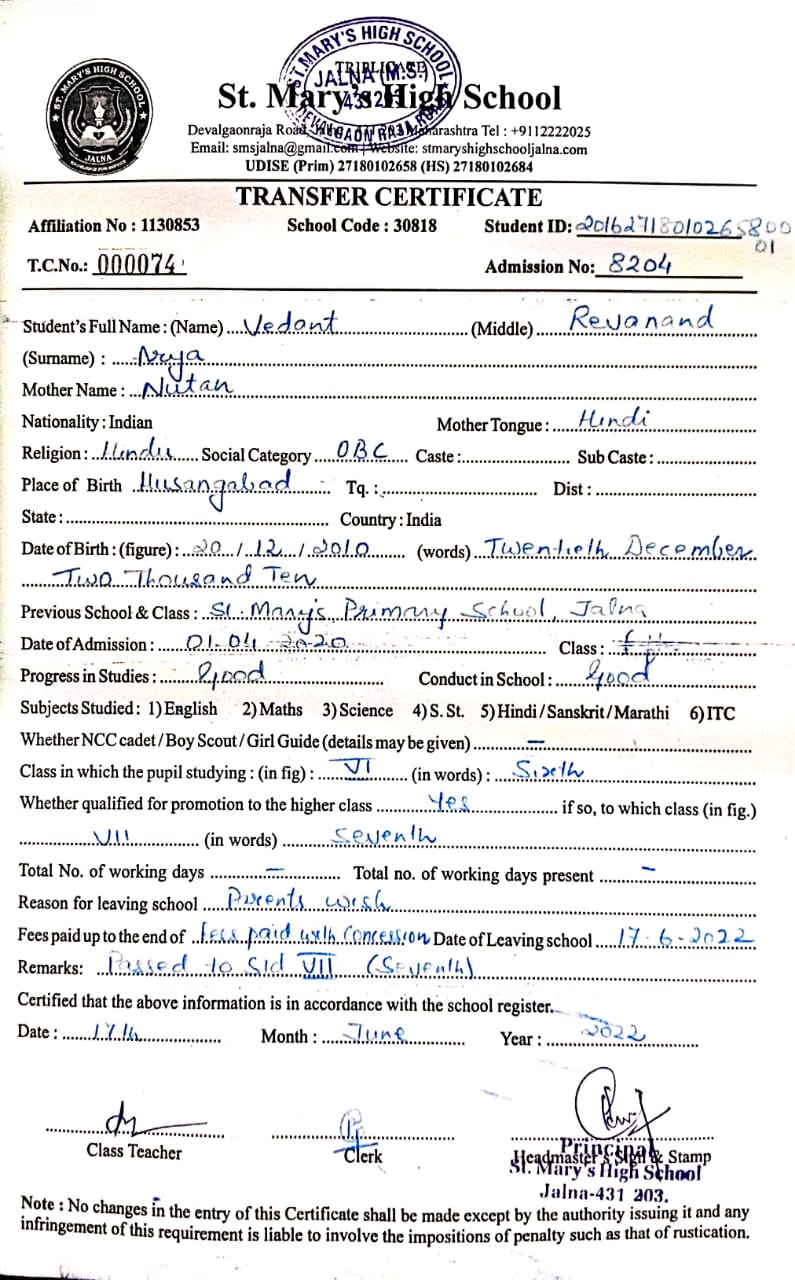 ST. MARY'S HIGH SCHOOL
JALNA (M.S.)
DEVALGAON RAJA ROAD
TRIPLICATE
ST. MARY'S HIGH SCHOOL
JALNA
St. Mary's High School
Devalgaonraja Road, Jalna 431 203 Maharashtra Tel : +9112222025
Email: smsjalna@gmail.com | Website: stmaryshighschooljalna.com
UDISE (Prim) 27180102658 (HS) 27180102684
TRANSFER CERTIFICATE
Affiliation No : 1130853 School Code : 30818 Student ID: 20162718010265800
01
T.C.No.: 000074 Admission No: 8204
Student's Full Name : (Name) Vedant (Middle) Revanand
(Surname) :
Mother Name : Nutan
Nationality : Indian Mother Tongue : Hindi
Religion : Hindu Social Category OBC Caste : Sub Caste :
Place of Birth Husangabad Tq. : Dist :
State : Country : India
Date of Birth : (figure) : 20 / 12 / 2010 (words) Twentieth December
Two Thousand Ten
Previous School & Class : St. Mary's Primary School, Jalna
Date of Admission : 01-04-2020 Class :
Progress in Studies : Good Conduct in School : Good
Subjects Studied : 1) English 2) Maths 3) Science 4) S. St. 5) Hindi / Sanskrit / Marathi 6) ITC
Whether NCC cadet / Boy Scout / Girl Guide (details may be given) —
Class in which the pupil studying : (in fig) : VI (in words) : Sixth
Whether qualified for promotion to the higher class Yes if so, to which class (in fig.)
VII (in words) Seventh
Total No. of working days — Total no. of working days present —
Reason for leaving school Parents wish
Fees paid up to the end of Fees paid with Concession Date of Leaving school 17-6-2022
Remarks: Passed to Std VII (Seventh)
Certified that the above information is in accordance with the school register.
Date : 17th Month : June Year : 2022
Class Teacher Clerk Headmaster's Sign & Stamp
Principal
St. Mary's High School
Jalna-431 203.
Note : No changes in the entry of this Certificate shall be made except by the authority issuing it and any
infringement of this requirement is liable to involve the impositions of penalty such as that of rustication.